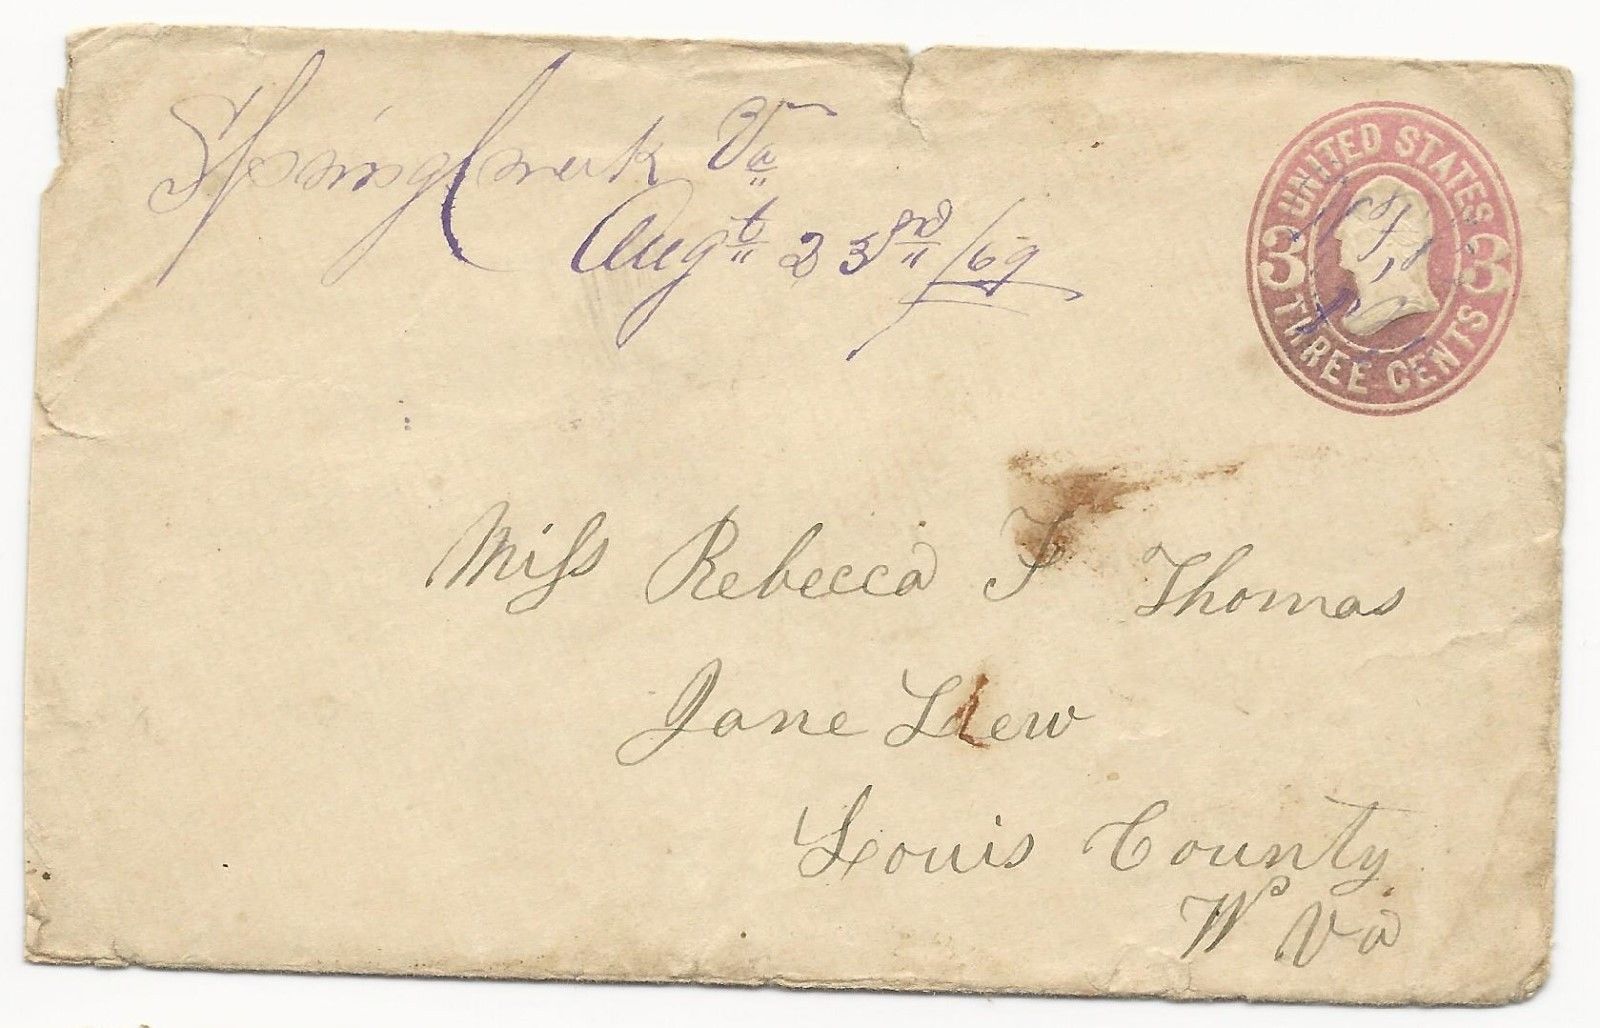 Spring Creek Va
Augt 23rd /69
UNITED STATES
3 3
THREE CENTS
Miss Rebecca F Thomas
Jane Lew
Louis County
W Va